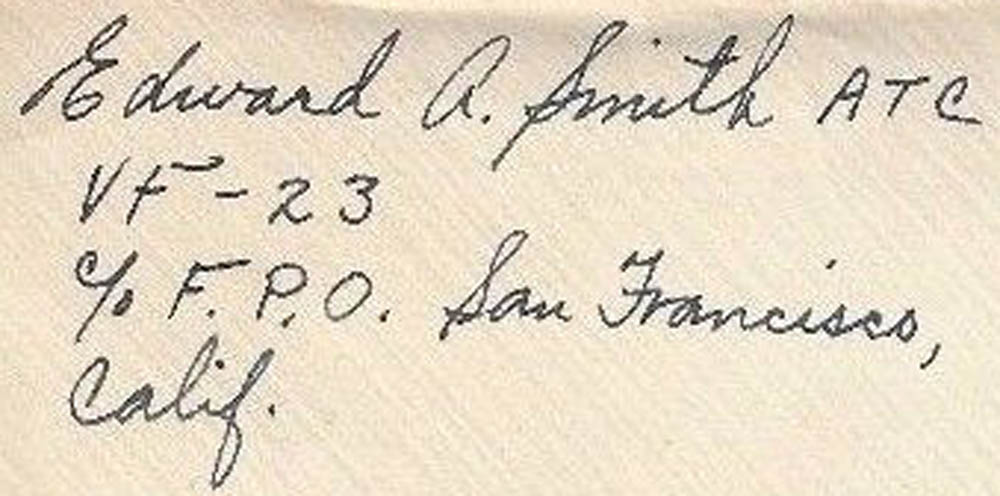 Edward A. Smith ATC
VF-23
c/o F.P.O. San Francisco,
Calif.